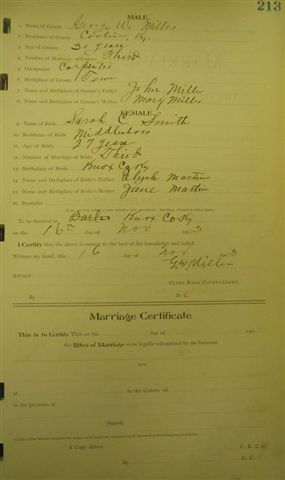 213
MALE.
1. Name of Groom George W. Miller
2. Residence of Groom Corbin, Ky.
3. Age of Groom 30 years
4. Number of Marriage of Groom Third
5. Occupation Carpenter
6. Birthplace of Groom Tenn
7. Name and Birthplace of Groom's Father John Miller
8. Name and Birthplace of Groom's Mother Mary Miller
FEMALE.
9. Name of Bride Sarah C. Smith
10. Residence of Bride Middlesboro
11. Age of Bride 27 years
12. Number of Marriage of Bride Third
13. Birthplace of Bride Knox Co Ky
14. Name and Birthplace of Bride's Father Elijah Martin
15. Name and Birthplace of Bride's Mother Jane Martin
16. Remarks
To be married at Knox Co Ky
on the 16th day of Nov 190 3
I Certify that the above is correct to the best of my knowledge and belief.
Witness my hand, this 16 day of Nov 190 3
G W Miller
ATTEST:
CLERK KNOX COUNTY COURT.
By D. C.
Marriage Certificate
This is to Certify That on the day of 190
the Rites of Marriage were legally solemnized by me between
AND
at in the County of
in the presence of
Signed,
A Copy Attest: C. K. C. C.
By D. C.